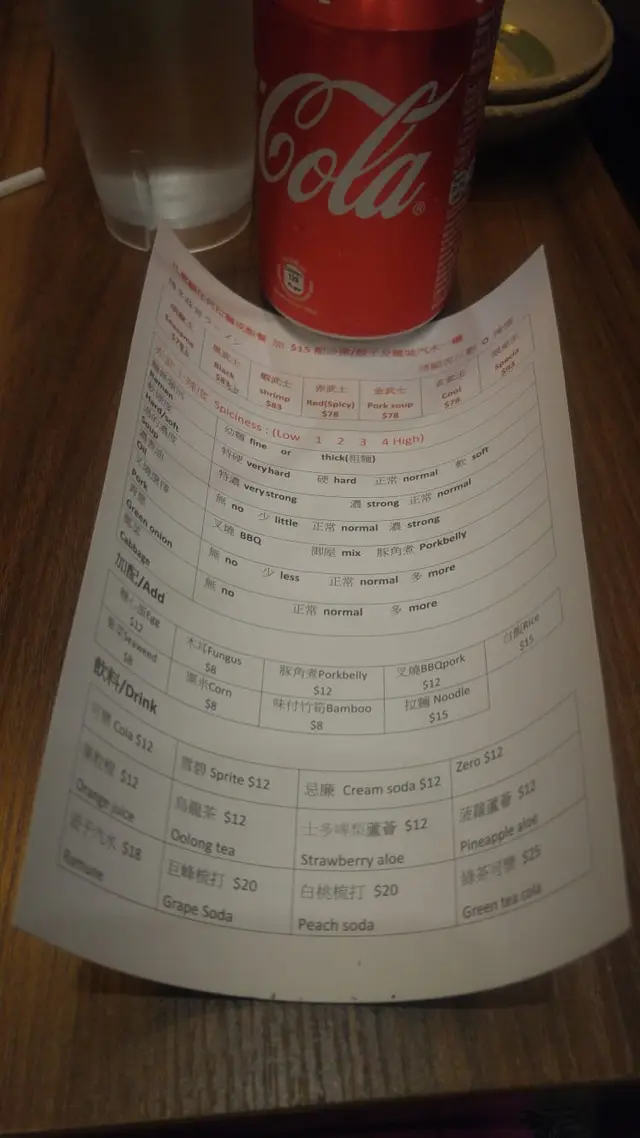 Cola®
$15
Black
shrimp
$83
赤武士
Red(Spicy)
$78
金武士
Pork soup
$78
Cool
$78
$93
Spiciness : (Low 1 2 3 4 High)
Ramen 幼麵 fine or thick(粗麵)
Hard/soft 特硬 very hard 硬 hard 正常 normal 軟 soft
Soup 特濃 very strong 濃 strong 正常 normal
Oil 無 no 少 little 正常 normal 濃 strong
Pork 叉燒 BBQ mix 豚角煮 Porkbelly
Green onion 無 no 少 less 正常 normal 多 more
Cabbage 無 no 正常 normal 多 more
加配/Add
Egg $12
木耳Fungus $8
豚角煮Porkbelly $12
叉燒BBQpork $12
白飯Rice $15
Seaweed $8
粟米Corn $8
味付竹筍Bamboo $8
拉麵 Noodle $15
飲料/Drink
可樂 Cola $12
雪碧 Sprite $12
忌廉 Cream soda $12
Zero $12
$12
Orange juice
烏龍茶 $12
Oolong tea
士多啤梨蘆薈 $12
Strawberry aloe
菠蘿蘆薈 $12
Pineapple aloe
波子汽水 $18
Ramune
巨峰梳打 $20
Grape Soda
白桃梳打 $20
Peach soda
綠茶可樂 $25
Green tea cola